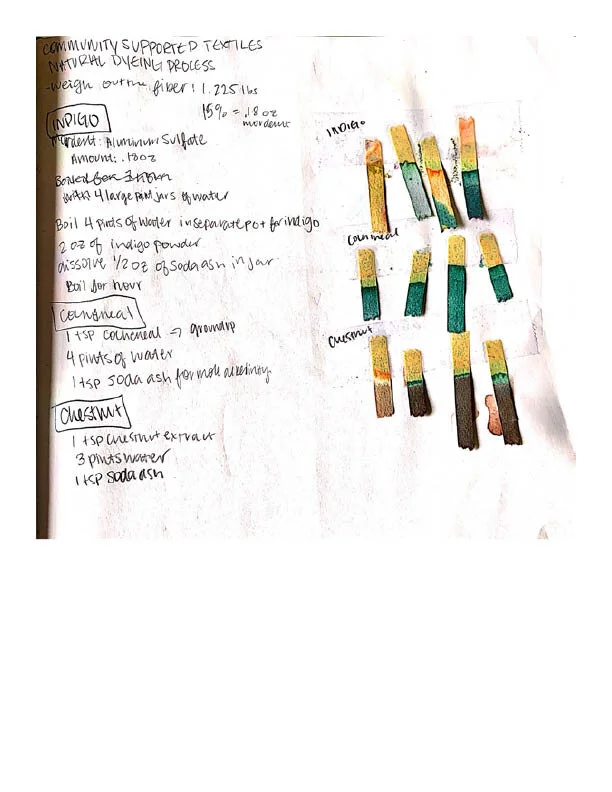 COMMUNITY SUPPORTED TEXTILES
NATURAL DYEING PROCESS
-weigh out the fiber: 1.225 lbs
15% = .18 oz
mordent
INDIGO
Mordent: Aluminum Sulfate
Amount: .18oz
Boiled for 1 hour
with 4 large pint jars of water
Boil 4 pints of water in separate pot for indigo
2 oz of indigo powder
dissolve 1/2 oz of soda ash in jar
Boil for hour
Cochineal
1 tsp cochineal → ground up
4 pints of water
1 tsp soda ash for more alkalinity
Chestnut
1 tsp chestnut extract
3 pints water
1 tsp soda ash
INDIGO
Cochineal
Chestnut